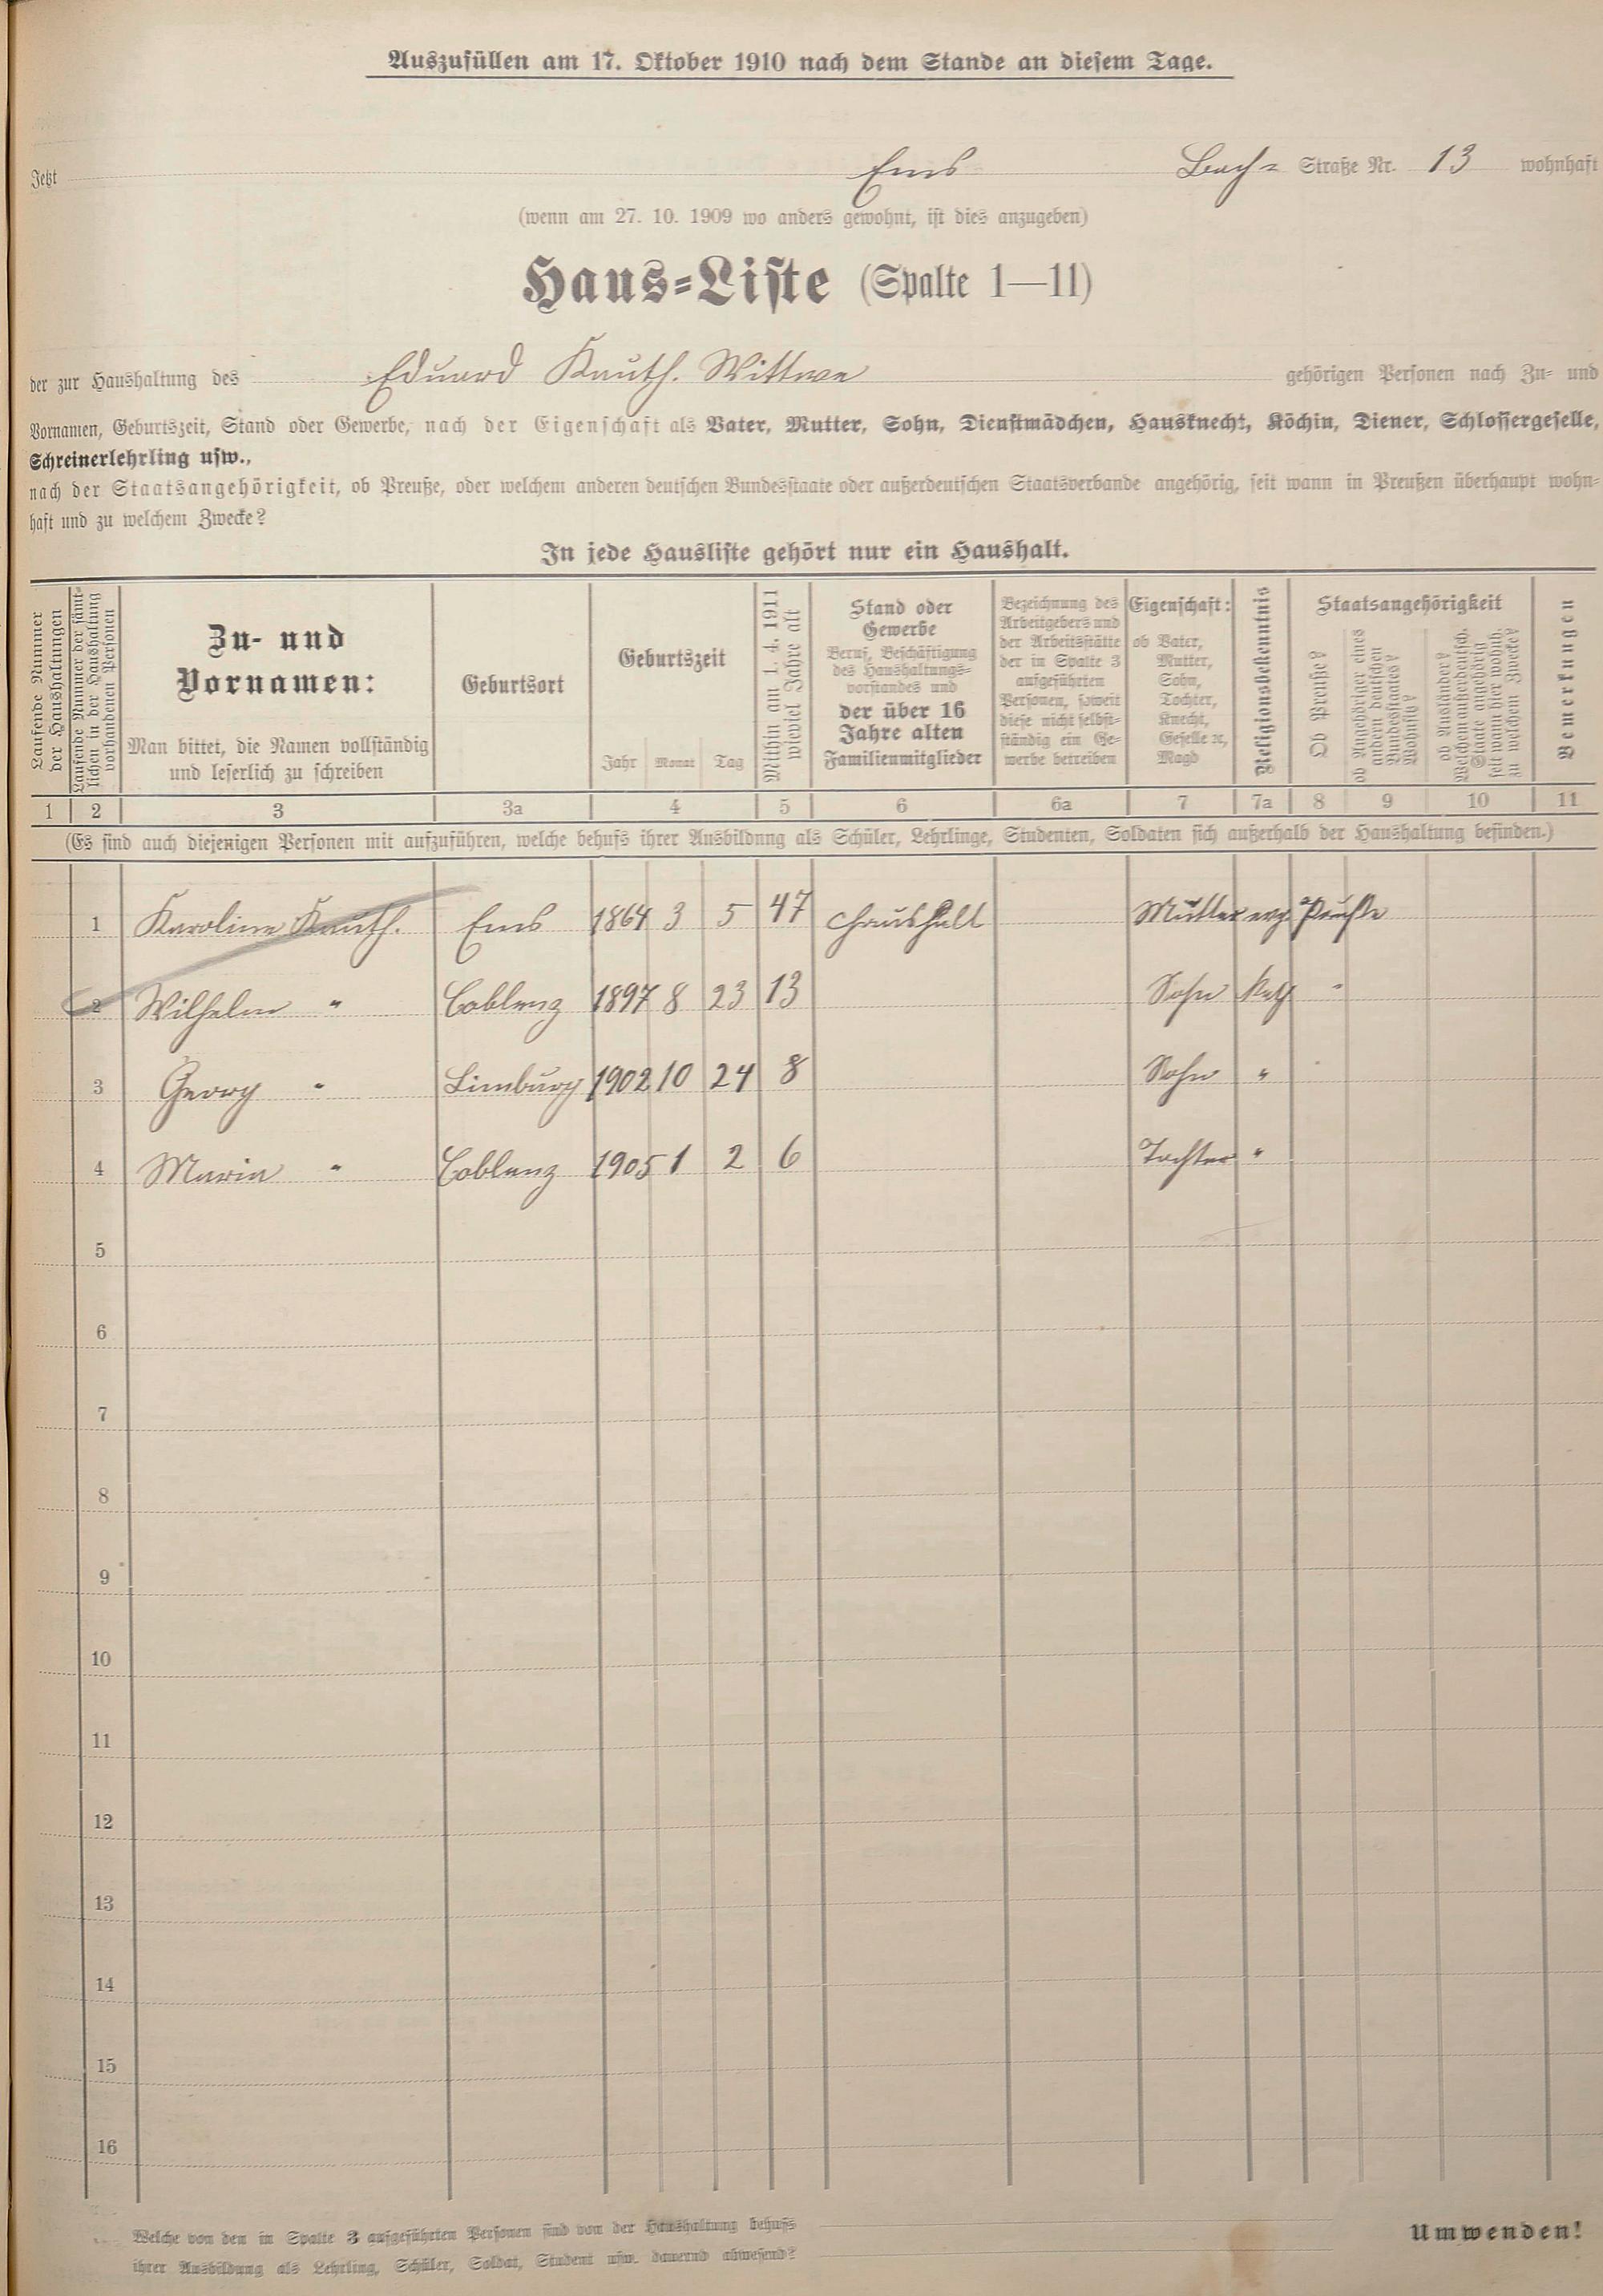 Auszufüllen am 17. Oktober 1910 nach dem Stande an diesem Tage.
Jetzt Ems Bach- Straße Nr. 13 wohnhaft
(wenn am 27. 10. 1909 wo anders gewohnt, ist dies anzugeben)
Haus-Liste (Spalte 1—11)
der zur Haushaltung des Eduard Knuth. Wittwe gehörigen Personen nach Zu- und
Vornamen, Geburtszeit, Stand oder Gewerbe, nach der Eigenschaft als Vater, Mutter, Sohn, Dienstmädchen, Hausknecht, Köchin, Diener, Schlossergeselle,
Schreinerlehrling usw.,
nach der Staatsangehörigkeit, ob Preuße, oder welchem anderen deutschen Bundesstaate oder außerdeutschen Staatsverbande angehörig, seit wann in Preußen überhaupt wohn-
haft und zu welchem Zwecke?
In jede Hausliste gehört nur ein Haushalt.
Laufende Nummer
der Haushaltungen
Laufende Nummer der sämt-
lichen in der Haushaltung
vorhandenen Personen
Zu- und
Vornamen:
Man bittet, die Namen vollständig
und leserlich zu schreiben
Geburtsort
Geburtszeit
Jahr Monat Tag
Mithin am 1. 4. 1911
wieviel Jahre alt
Stand oder
Gewerbe
Beruf, Beschäftigung
des Haushaltungs-
vorstandes und
der über 16
Jahre alten
Familienmitglieder
Bezeichnung des
Arbeitgebers und
der Arbeitsstätte
der in Spalte 3
aufgeführten
Personen, soweit
diese nicht selbst-
ständig ein Ge-
werbe betreiben
Eigenschaft:
ob Vater,
Mutter,
Sohn,
Tochter,
Knecht,
Geselle ꝛc,
Magd
Religionsbekenntnis
Staatsangehörigkeit
Ob Preuße?
ob Angehöriger eines
andern deutschen
Bundesstaates?
Wohnsitz?
ob Ausländer?
Welchem außerdeutsch.
Staate angehörig
seit wann hier wohnh.
zu welchem Zwecke?
Bemerkungen
1 2 3 3a 4 5 6 6a 7 7a 8 9 10 11
(Es sind auch diejenigen Personen mit aufzuführen, welche behufs ihrer Ausbildung als Schüler, Lehrlinge, Studenten, Soldaten sich außerhalb der Haushaltung befinden.)
1 Karoline Knuth. Ems 1864 3 5 47 Haushalt Mutter evg. Preuße
2 Wilhelm " Coblenz 1897 8 23 13 Sohn Kath "
3 Georg " Limburg 1902 10 24 8 Sohn "
4 Maria " Coblenz 1905 1 2 6 Tochter "
5
6
7
8
9
10
11
12
13
14
15
16
Welche von den in Spalte 3 aufgeführten Personen sind von der Haushaltung behufs
ihrer Ausbildung als Lehrling, Schüler, Soldat, Student usw. dauernd abwesend?
Umwenden!